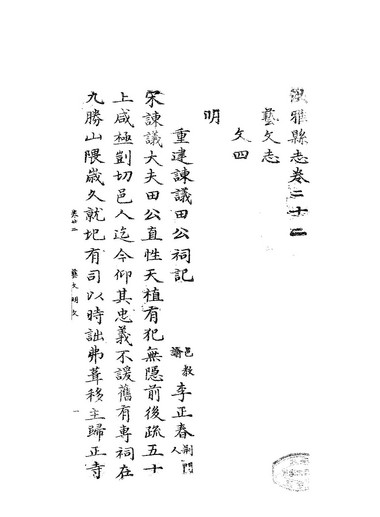 洪雅縣志卷二十二
藝文志
文四
明
重建諫議田公祠記 邑教諭 李正春 荊門人
宋諫議大夫田公直性天植有犯無隱前後疏五十
上咸極剴切邑人迄今仰其忠義不諼舊有專祠在
九勝山隈歲久就圯有司以時詘弗葺移主歸正寺
卷廿二 藝文明文 一